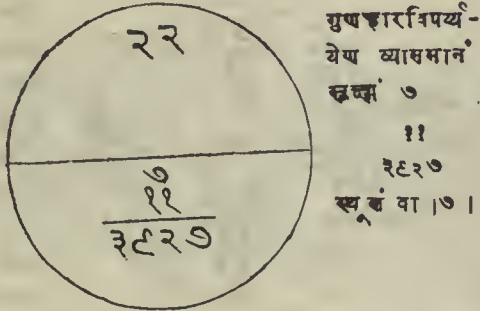 २२
७
११
३९२७
गुणकारविपर्य्य-
येण व्यासमानं
सूक्ष्मं ७
११
३९२७
स्थूलं वा ।७।